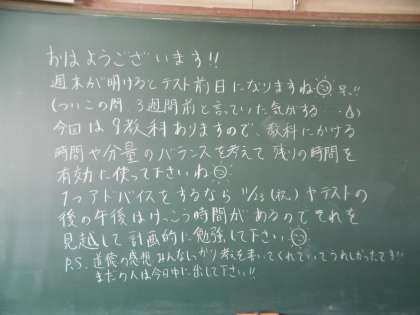 おはようございます!!
週末が明けるとテスト前日になりますね 早..!!
(ついこの間、3週間前と言っていた気がする…)
今回は9教科ありますので、教科にかける
時間や分量のバランスを考えて残りの時間を
有効に使って下さいね
1つアドバイスをするなら 11/23(祝)やテストの
後の午後はけっこう時間があるのでそれを
見越して計画的に勉強して下さい
P.S. 道徳の感想みんなしっかり考えを書いてくれていてうれしかったです!!
まだの人は今日中に出して下さい!!